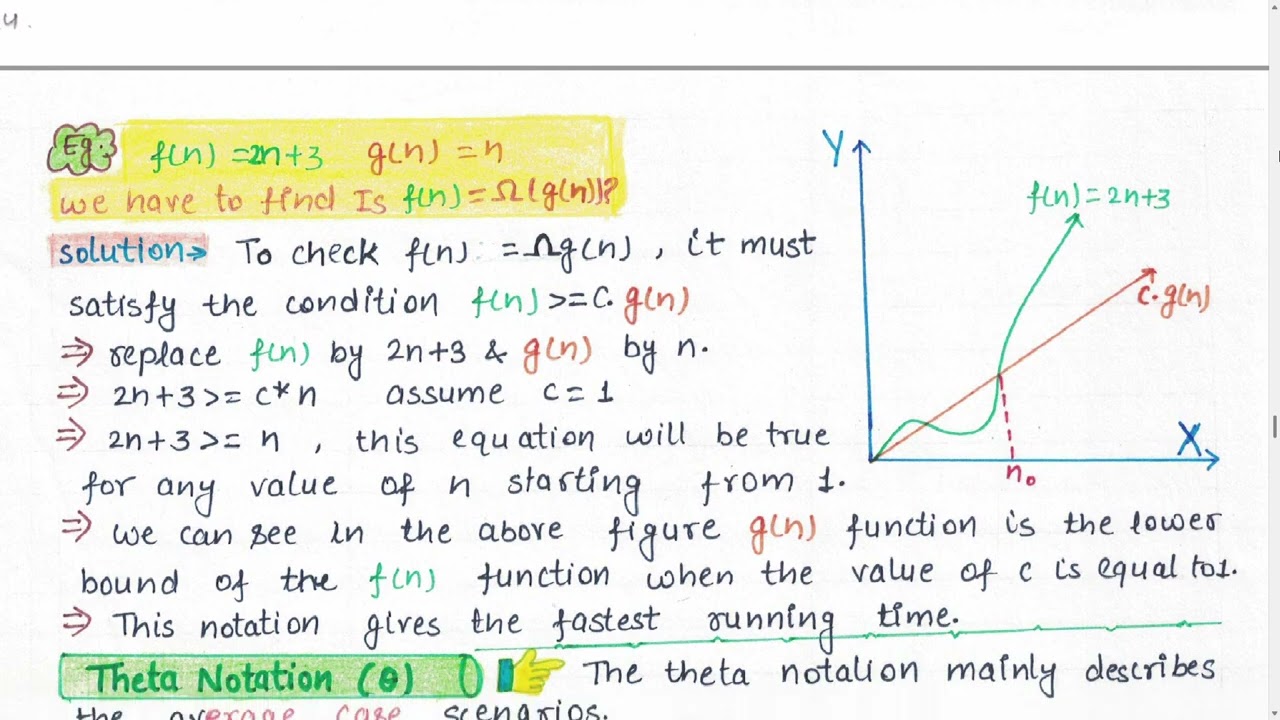 4.
Eg:
f(n) = 2n+3 g(n) = n
we have to find Is f(n) = Ω(g(n))?
solution→ To check f(n) = Ωg(n), it must
satisfy the condition f(n) >= C. g(n)
⇒ replace f(n) by 2n+3 & g(n) by n.
⇒ 2n+3 >= c*n assume c = 1
⇒ 2n+3 >= n, this equation will be true
for any value of n starting from 1.
Y
f(n) = 2n+3
C.g(n)
X
n₀
⇒ we can see in the above figure g(n) function is the lower
bound of the f(n) function when the value of c is equal to 1.
⇒ This notation gives the fastest running time.
Theta Notation (θ) The theta notation mainly describes
the average case scenarios.